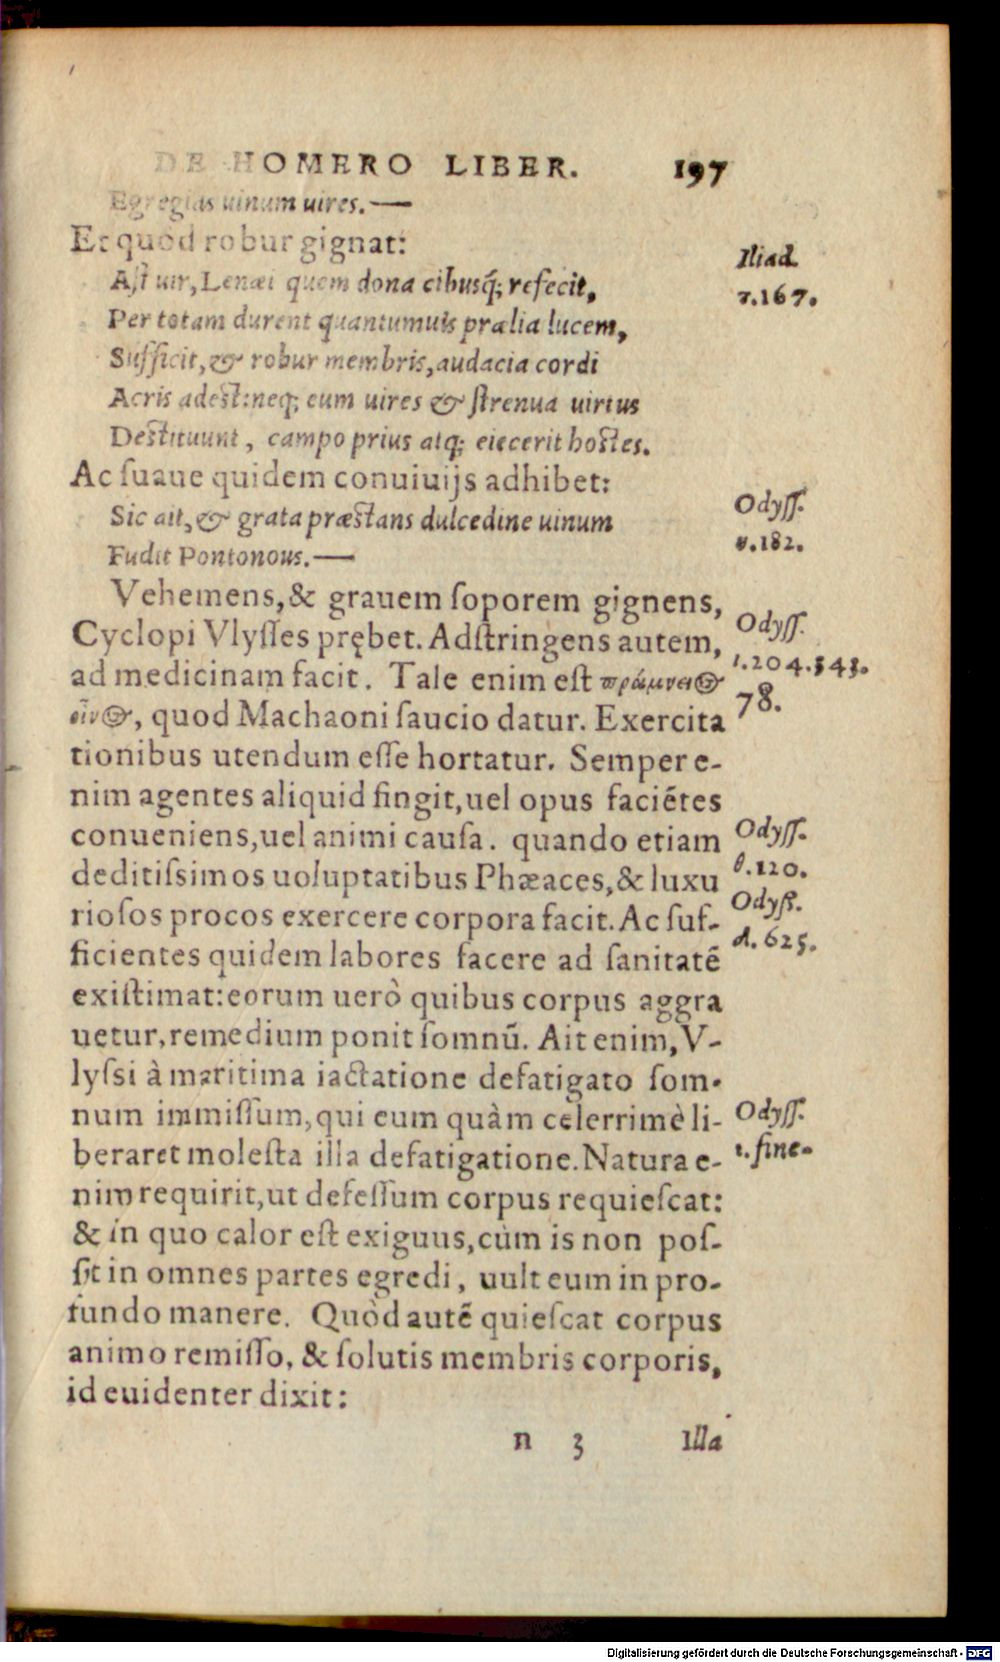 DE HOMERO LIBER. 197
Egregias uinum uires.—
Et quòd robur gignat:
Ast uir, Lenæi quem dona cibusq́; refecit,
Iliad.
τ.167.
Per totam durent quantumuis prælia lucem,
Sufficit, & robur membris, audacia cordi
Acris adest: neq; eum uires & strenua uirtus
Destituunt, campo prius atq; eiecerit hostes.
Ac suaue quidem conuiuijs adhibet:
Sic ait, & grata præstans dulcedine uinum
Odyss.
ν.182.
Fudit Pontonous.—
Vehemens, & grauem soporem gignens,
Cyclopi Vlysses prębet. Adstringens autem,
Odyss.
ι.204.343.
ad medicinam facit. Tale enim est πράμνειος
78.
οἶνος, quod Machaoni saucio datur. Exercita
tionibus utendum esse hortatur. Semper e-
nim agentes aliquid fingit, uel opus faciētes
conueniens, uel animi causa. quando etiam
Odyss.
θ.120.
deditissimos uoluptatibus Phæaces, & luxu
Odyss.
riosos procos exercere corpora facit. Ac suf-
δ.625.
ficientes quidem labores facere ad sanitatē
existimat: eorum uerò quibus corpus aggra
uetur, remedium ponit somnū. Ait enim, V-
lyssi à maritima iactatione defatigato som-
num immissum, qui eum quàm celerrimè li-
Odyss.
ε. fine.
beraret molesta illa defatigatione. Natura e-
nim requirit, ut defessum corpus requiescat:
& in quo calor est exiguus, cùm is non pos-
sit in omnes partes egredi, uult eum in pro-
fundo manere. Quòd autē quiescat corpus
animo remisso, & solutis membris corporis,
id euidenter dixit:
n 3 Illa
Digitalisierung gefördert durch die Deutsche Forschungsgemeinschaft - DFG